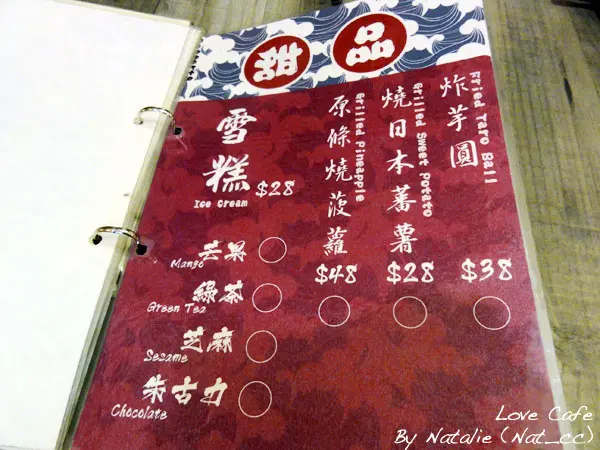 甜品
雪糕
Ice Cream
$28
芒果
Mango
綠茶
Green Tea
芝麻
Sesame
朱古力
Chocolate
原條燒菠蘿
Grilled Pineapple
$48
燒日本蕃薯
Grilled Sweet Potato
$28
炸芋圓
Fried Taro Ball
$38
Love Cafe
By Natalie (Nat_cc)